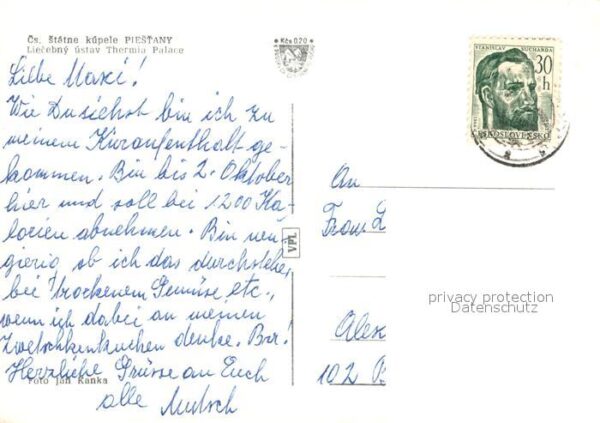 Čs. štátne kúpele PIEŠŤANY
Liečebný ústav Thermia Palace
Kčs 0,20
STANISLAV SUCHARDA
30
h
ČESKOSLOVENSKO
Liebe Maxi!
Wie Du siehst bin ich zu
meinem Kuraufenthalt ge-
kommen. Bin bis 2. Oktober
hier und soll bei 1200 Ka-
lorien abnehmen. Bin neu-
gierig ob ich das durchstehe,
bei trockenem Gemüse etc.,
wenn ich dabei an meinen
Zwetschkenkuchen denke. Brr!
Herzliche Grüsse an Euch
alle Mutsch
Foto Ján Ranka
VPL
An
Frau L
Alex
102
privacy protection
Datenschutz